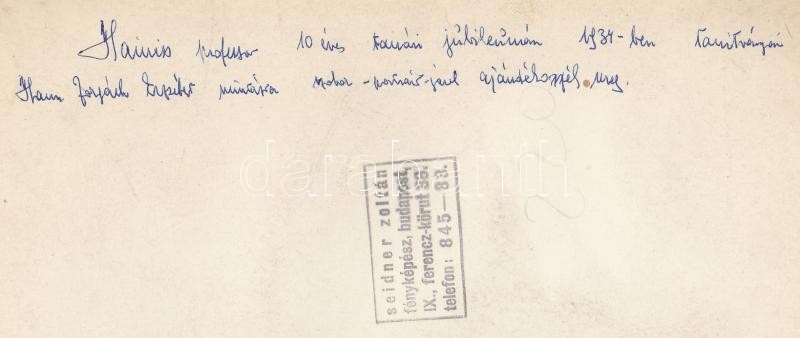 Hainiss professor 10 éves tanári jubileumán 1934-ben tanítványai
Hann Forgách Erzsébet mintázta szobor-portréjával ajándékozzák meg.
darabanth
seidner zoltán
fényképész, budapest,
IX., ferencz-körut 38.
telefon: 845—83.